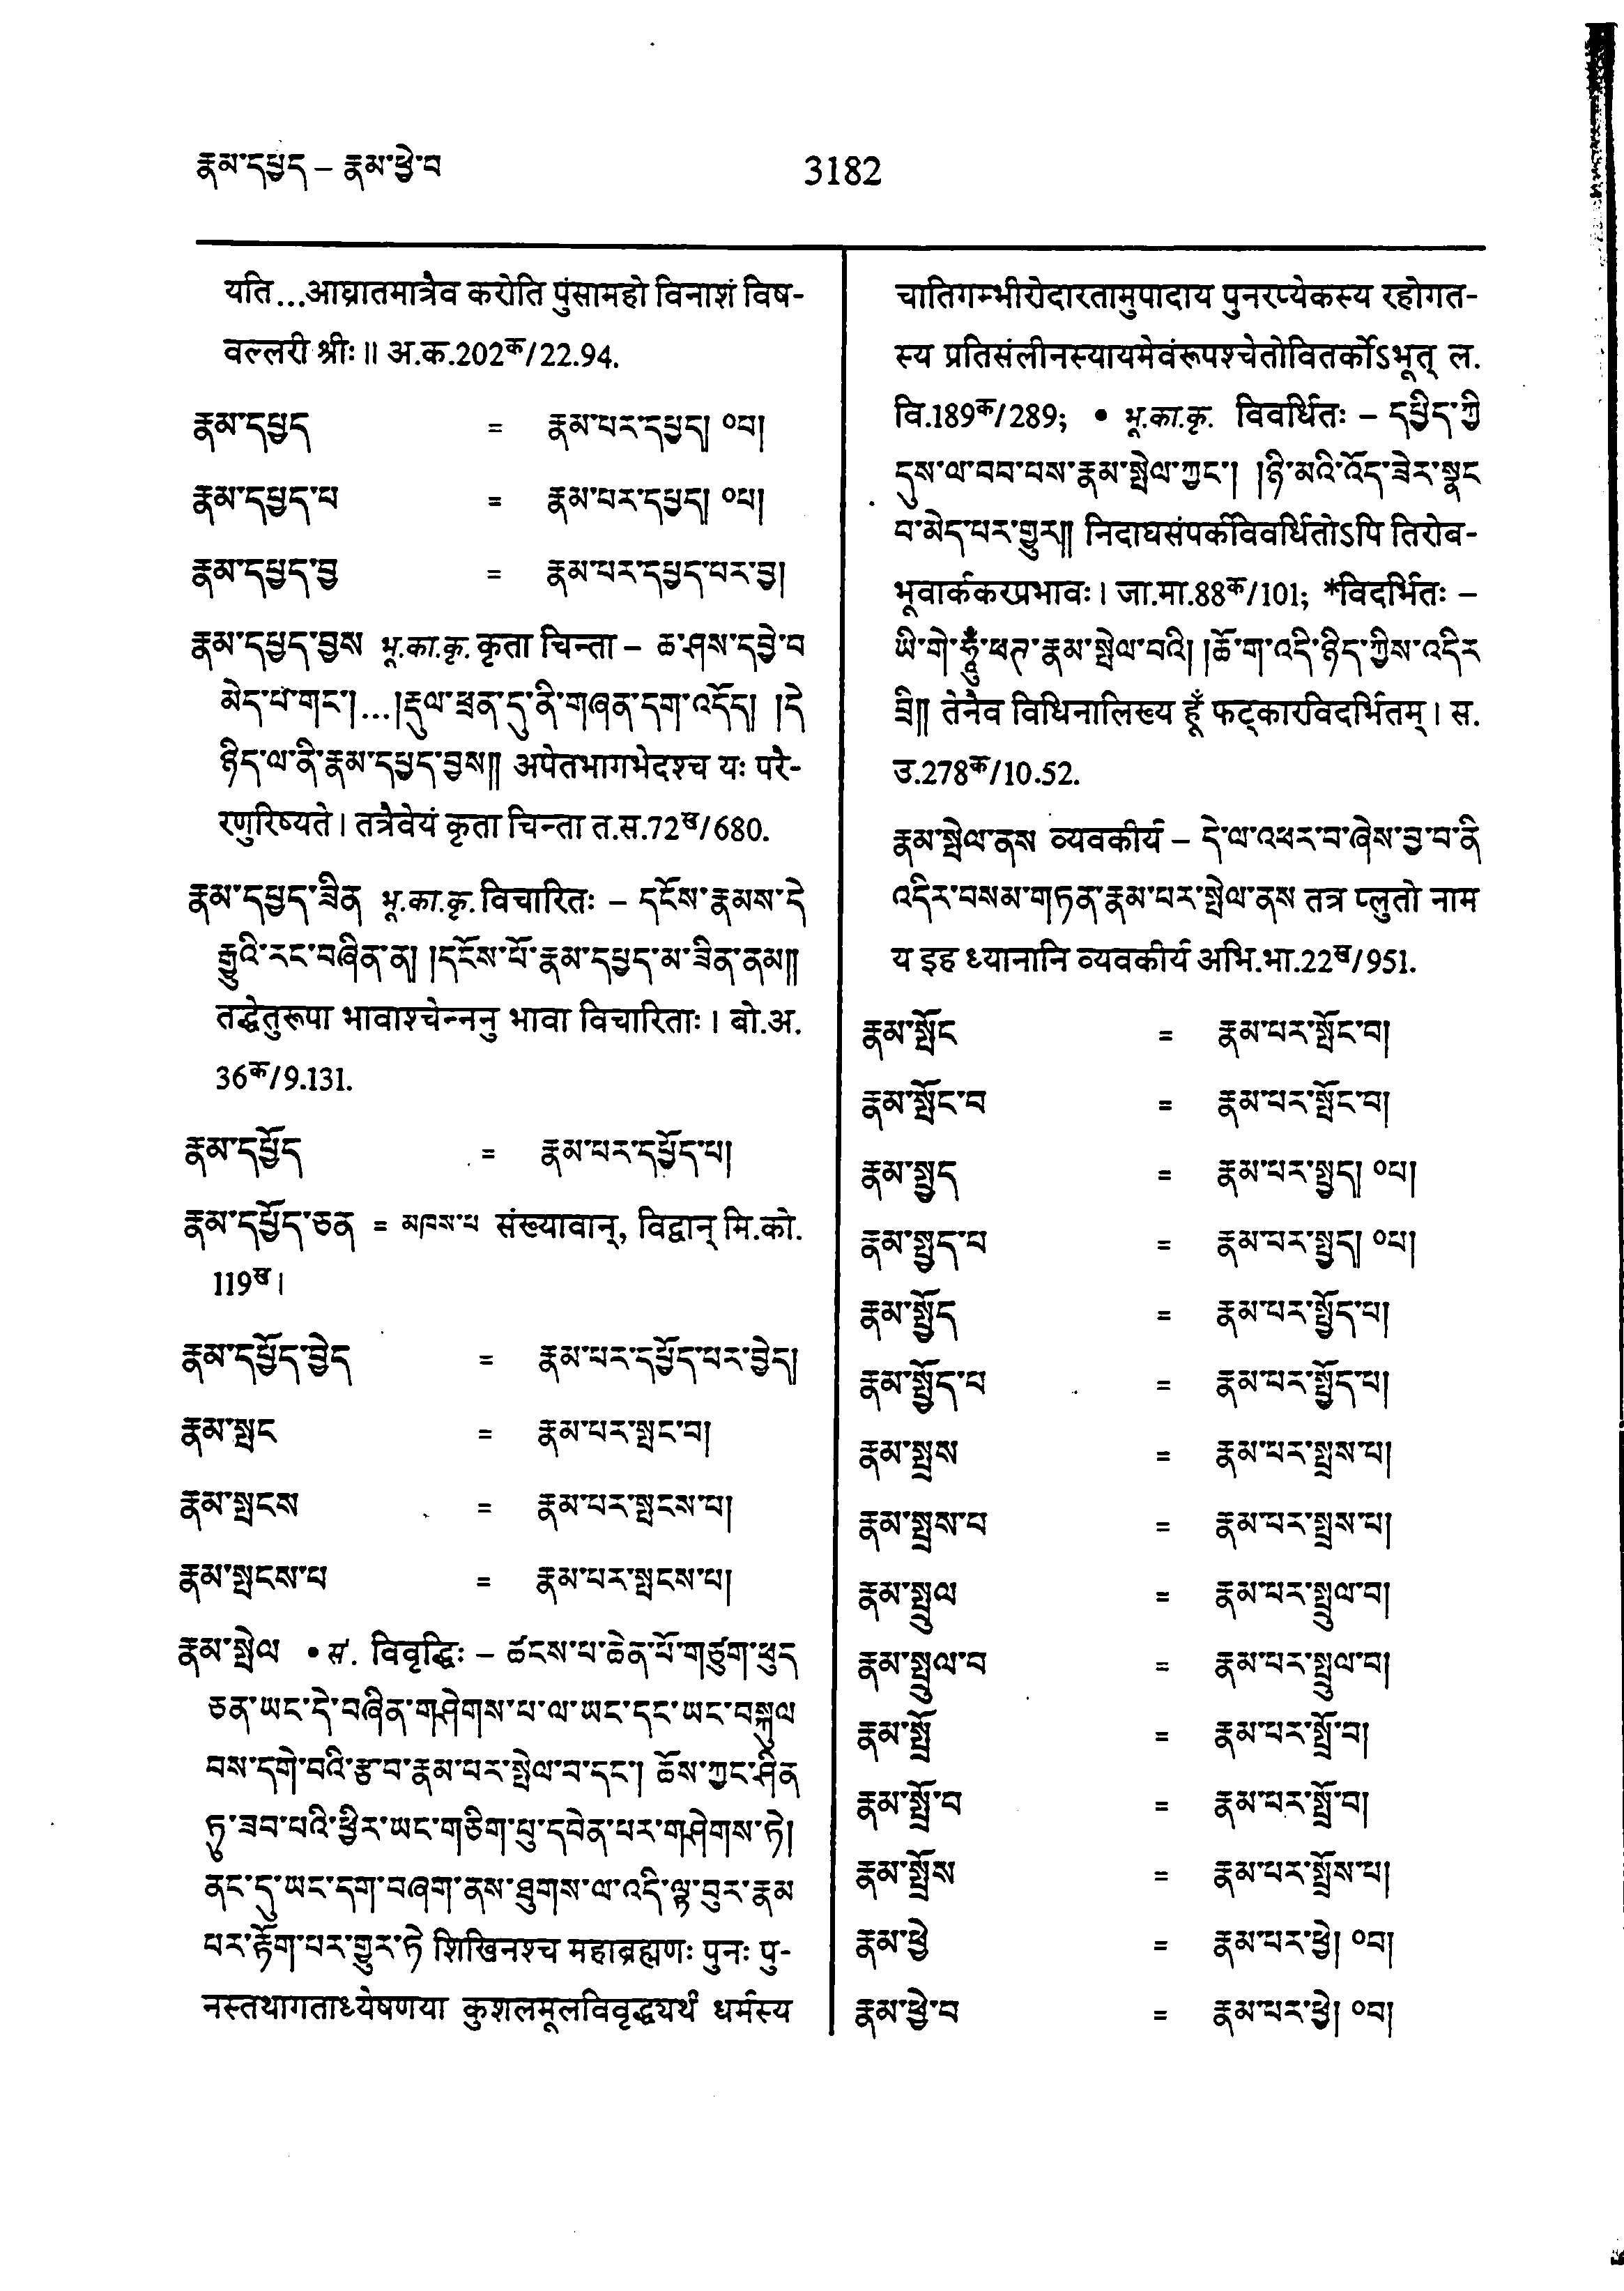 རྣམ་དཔྱད – རྣམ་ཕྱེ་བ
3182
यति...आघ्रातमात्रैव करोति पुंसामहो विनाशं विष-
वल्लरी श्रीः ॥ अ.क.202क/22.94.
རྣམ་དཔྱད = རྣམ་པར་དཔྱད། ༠པ།
རྣམ་དཔྱད་པ = རྣམ་པར་དཔྱད། ༠པ།
རྣམ་དཔྱད་བྱ = རྣམ་པར་དཔྱད་པར་བྱ།
རྣམ་དཔྱད་བྱས भू.का.कृ. कृता चिन्ता – ཆ་ཤས་དབྱེ་བ
མེད་པ་གང་།...།རྡུལ་ཕྲན་དུ་ནི་གཞན་དག་འདོད། །དེ
ཉིད་ལ་ནི་རྣམ་དཔྱད་བྱས།། अपेतभागभेदश्च यः परै-
रणुरिष्यते। तत्रैवेयं कृता चिन्ता त.स.72ख/680.
རྣམ་དཔྱད་ཟིན भू.का.कृ. विचारितः – དངོས་རྣམས་དེ
རྒྱུའི་རང་བཞིན་ན། །དངོས་པོ་རྣམ་དཔྱད་མ་ཟིན་ནམ།།
तद्धेतुरूपा भावाश्चेन्ननु भावा विचारिताः। बो.अ.
36क/9.131.
རྣམ་དཔྱོད = རྣམ་པར་དཔྱོད་པ།
རྣམ་དཔྱོད་ཅན = མཁས་པ संख्यावान्, विद्वान् मि.को.
119ख।
རྣམ་དཔྱོད་བྱེད = རྣམ་པར་དཔྱོད་པར་བྱེད།
རྣམ་སྤང = རྣམ་པར་སྤང་བ།
རྣམ་སྤངས = རྣམ་པར་སྤངས་པ།
རྣམ་སྤངས་པ = རྣམ་པར་སྤངས་པ།
རྣམ་སྤེལ • सं. विवृद्धिः – ཚངས་པ་ཆེན་པོ་གཙུག་ཕུད
ཅན་ཡང་དེ་བཞིན་གཤེགས་པ་ལ་ཡང་དང་ཡང་བསྐུལ
བས་དགེ་བའི་རྩ་བ་རྣམ་པར་སྤེལ་བ་དང་། ཆོས་ཀྱང་ཤིན
ཏུ་ཟབ་པའི་ཕྱིར་ཡང་གཅིག་པུ་དབེན་པར་གཤེགས་ཏེ།
ནང་དུ་ཡང་དག་བཞག་ནས་ཐུགས་ལ་འདི་ལྟ་བུར་རྣམ
པར་རྟོག་པར་གྱུར་ཏེ शिखिनश्च महाब्रह्मणः पुनः पु-
नस्तथागताध्येषणया कुशलमूलविवृद्ध्यर्थं धर्मस्य
चातिगम्भीरोदारतामुपादाय पुनरप्येकस्य रहोगत-
स्य प्रतिसंलीनस्यायमेवंरूपश्चेतोवितर्कोऽभूत् ल.
वि.189क/289; • भू.का.कृ. विवर्धितः – དཔྱིད་ཀྱི
དུས་ལ་བབ་པས་རྣམ་སྤེལ་ཀྱང་། །ཉི་མའི་འོད་ཟེར་སྣང
བ་མེད་པར་གྱུར།། निदाघसंपर्कविवर्धितोऽपि तिरोब-
भूवार्ककरप्रभावः। जा.मा.88क/101; *विदर्भितः –
ཡི་གེ་ཧཱུྃ་ཕཊ་རྣམ་སྤེལ་བའི། །ཆོ་ག་འདི་ཉིད་ཀྱིས་འདིར
བྲི།། तेनैव विधिनालिख्य हूँ फट्कारविदर्भितम्। स.
उ.278क/10.52.
རྣམ་སྤེལ་ནས व्यवकीर्य – དེ་ལ་འཕར་བ་ཞེས་བྱ་བ་ནི
འདིར་བསམ་གཏན་རྣམ་པར་སྤེལ་ནས तत्र प्लुतो नाम
य इह ध्यानानि व्यवकीर्य अभि.भा.22ख/951.
རྣམ་སྤོང = རྣམ་པར་སྤོང་བ།
རྣམ་སྤོང་བ = རྣམ་པར་སྤོང་བ།
རྣམ་སྤྱད = རྣམ་པར་སྤྱད། ༠པ།
རྣམ་སྤྱད་པ = རྣམ་པར་སྤྱད། ༠པ།
རྣམ་སྤྱོད = རྣམ་པར་སྤྱོད་པ།
རྣམ་སྤྱོད་པ = རྣམ་པར་སྤྱོད་པ།
རྣམ་སྤྲས = རྣམ་པར་སྤྲས་པ།
རྣམ་སྤྲས་པ = རྣམ་པར་སྤྲས་པ།
རྣམ་སྤྲུལ = རྣམ་པར་སྤྲུལ་བ།
རྣམ་སྤྲུལ་བ = རྣམ་པར་སྤྲུལ་བ།
རྣམ་སྤྲོ = རྣམ་པར་སྤྲོ་བ།
རྣམ་སྤྲོ་བ = རྣམ་པར་སྤྲོ་བ།
རྣམ་སྤྲོས = རྣམ་པར་སྤྲོས་པ།
རྣམ་ཕྱེ = རྣམ་པར་ཕྱེ། ༠བ།
རྣམ་ཕྱེ་བ = རྣམ་པར་ཕྱེ། ༠བ།